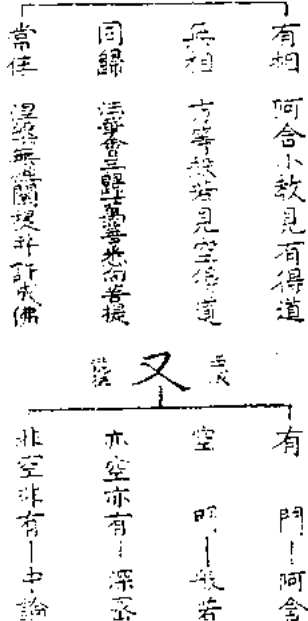 有相 阿含小教見有得道
無相 方等般若見空得道
同歸 法華會三歸一萬善悉向菩提
常住 涅槃無性闡提并許成佛
又
有 門—阿含
空 門—般若
亦空亦有—深密
非空非有—中論